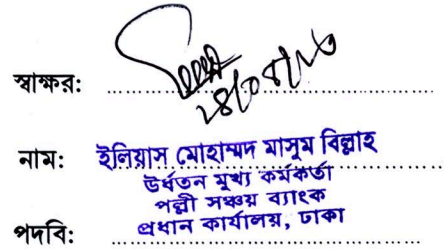 স্বাক্ষর:
নাম: ইলিয়াস মোহাম্মদ মাসুম বিল্লাহ
উর্ধতন মূখ্য কর্মকর্তা
পল্লী সঞ্চয় ব্যাংক
পদবি: প্রধান কার্যালয়, ঢাকা